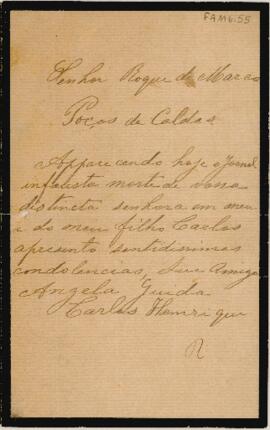 FAM6.55
Senhor Roque de Marco
Poços de Caldas
Apparecendo hoje o Jornal
infausta morte de vossa
distincta senhora em meu
e do meu filho Carlos
apresento sentidissimas
condolencias, Sua Amiga
Angela Guida
Carlos Henrique